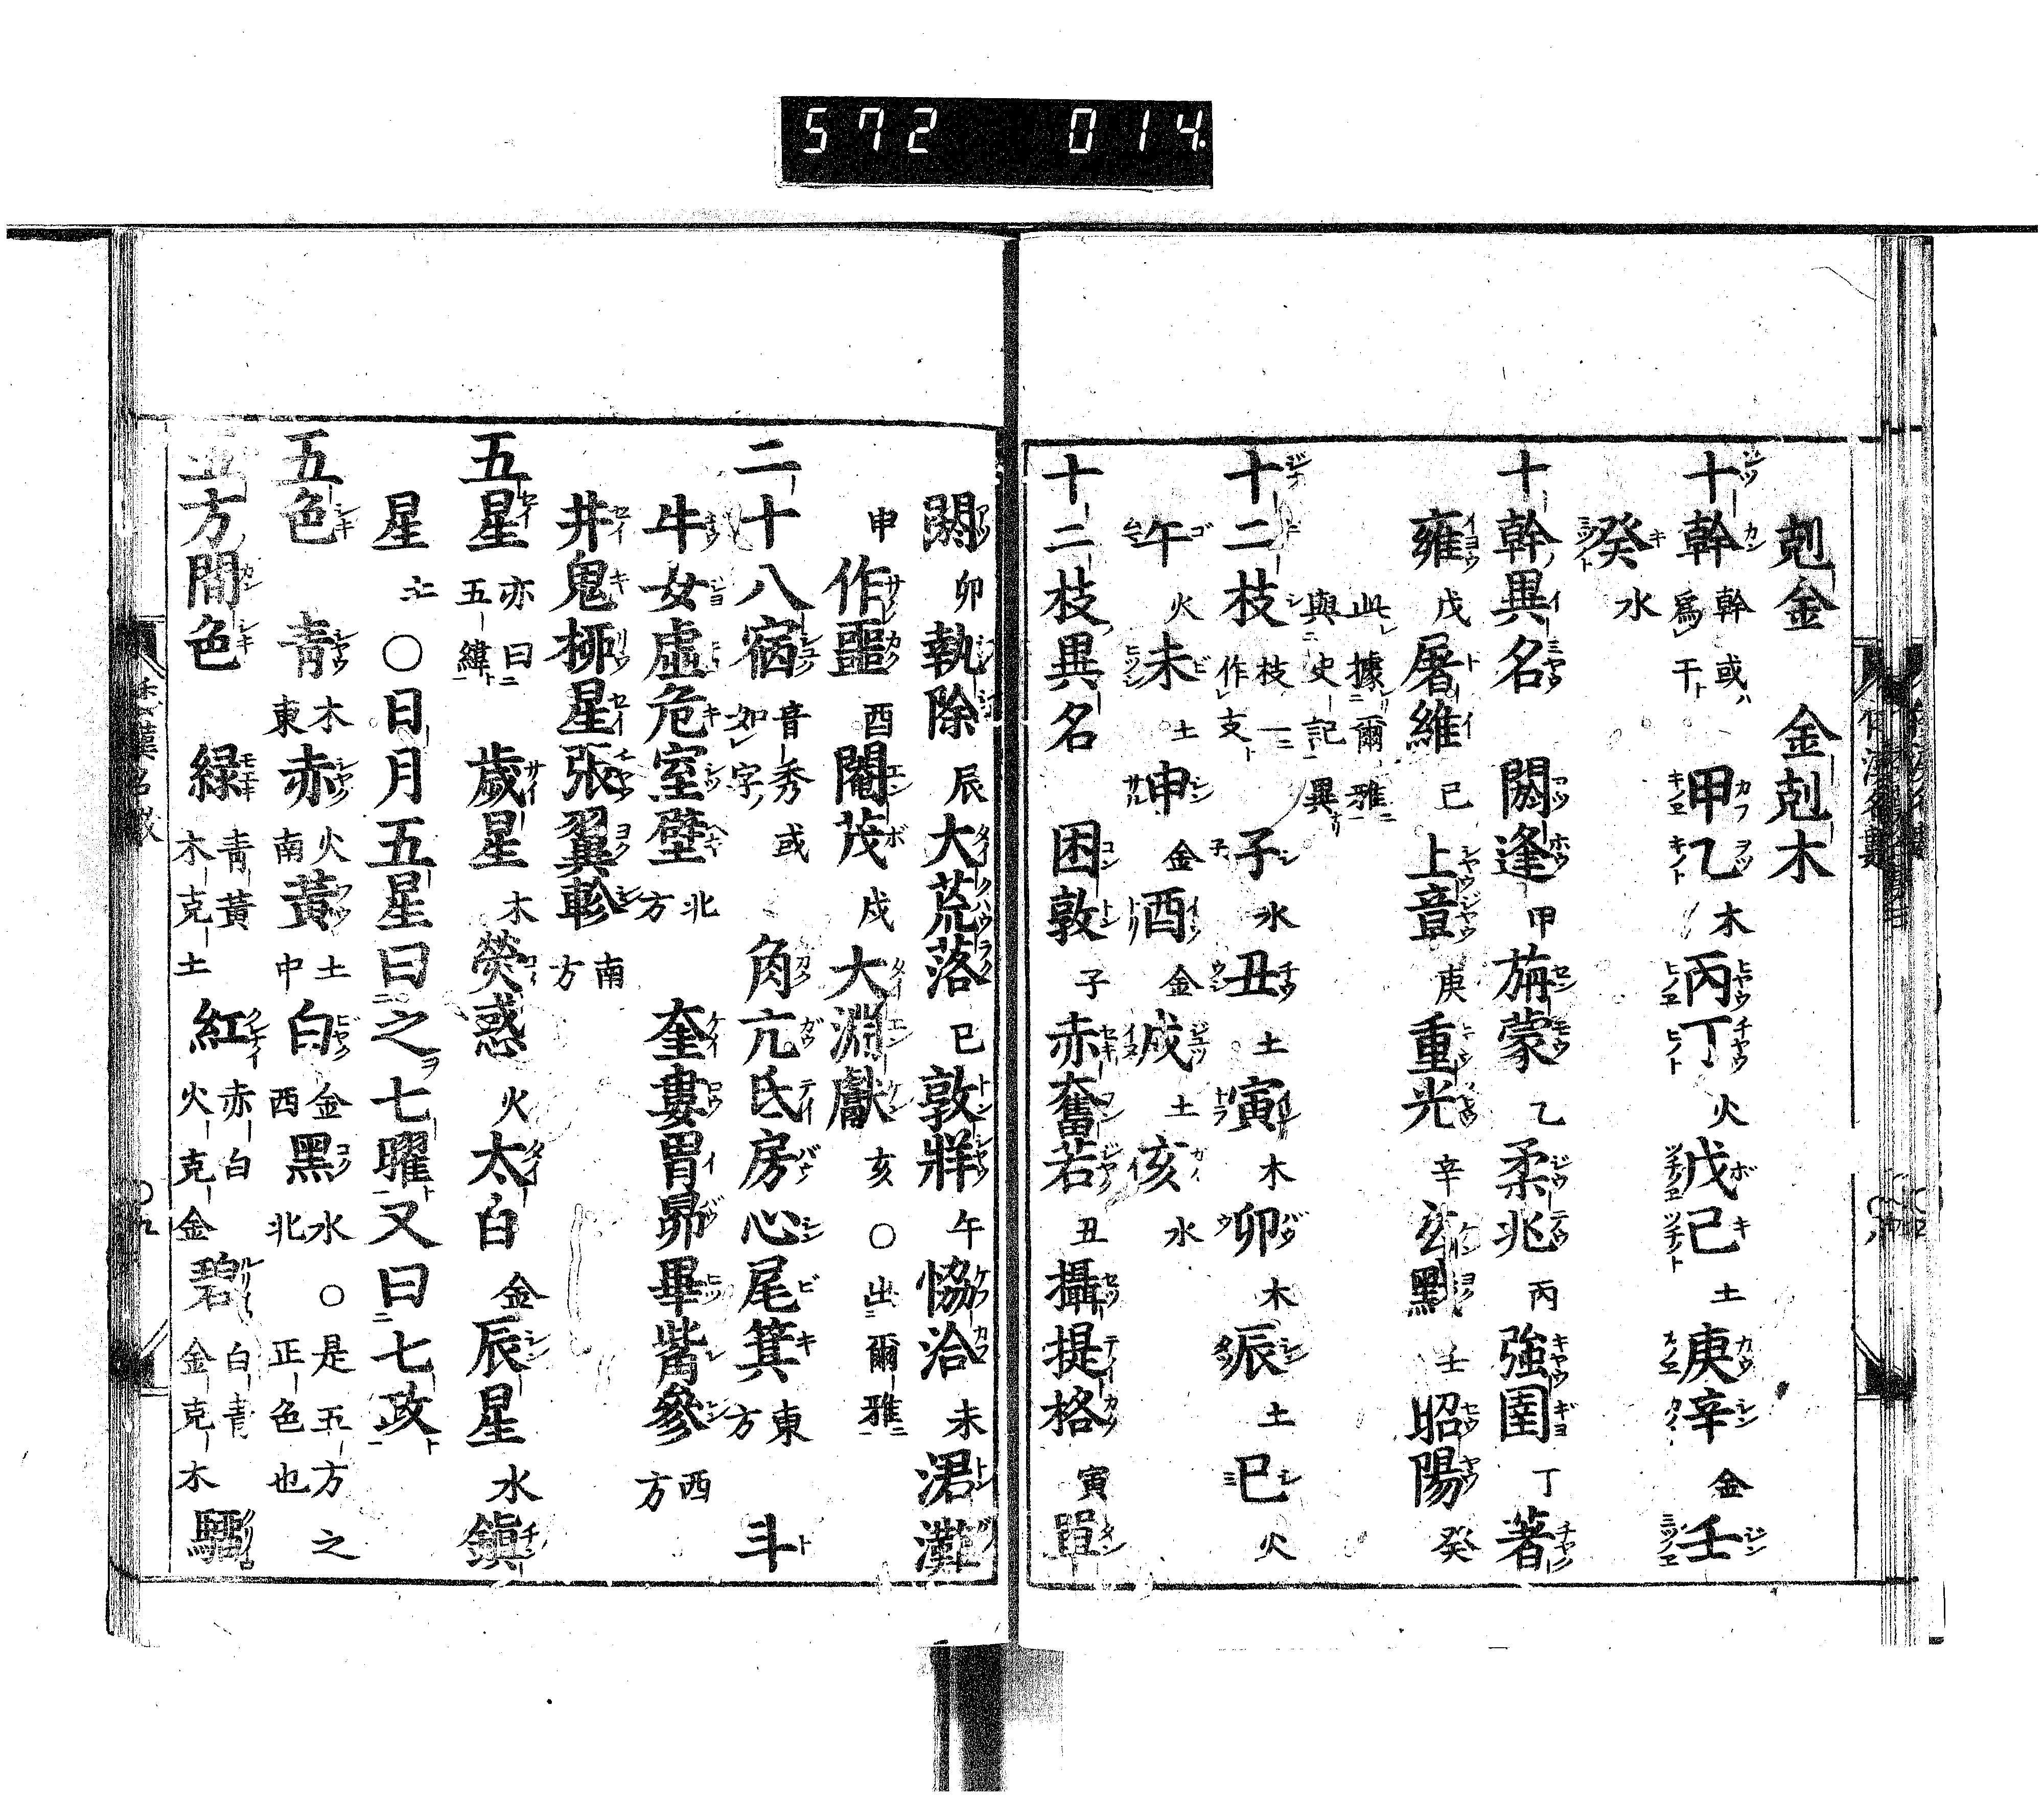 572 014.
剋金 金剋木
十幹 幹或ハ爲干ト 甲乙 木 丙丁 火 戊己 土 庚辛 金 壬
癸 水
十幹異名 閼逢 甲 旃蒙 乙 柔兆 丙 強圉 丁 著
雍 戊 屠維 己 上章 庚 重光 辛 玄黓 壬 昭陽 癸
此據爾雅與史記異
十二枝 枝一作支 子 水 丑 土 寅 木 卯 木 辰 土 巳 火
午 火 未 土 申 金 酉 金 戌 土 亥 水
十二枝異名 困敦 子 赤奮若 丑 攝提格 寅 單
閼 卯 執除 辰 大荒落 巳 敦牂 午 協洽 未 涒灘
申 作噩 酉 閹茂 戌 大淵獻 亥 ○出爾雅
二十八宿 音秀或如字 角亢氐房心尾箕 東方 斗
牛女虛危室壁 北方 奎婁胃昴畢觜參 西方
井鬼柳星張翼軫 南方
五星 亦曰五緯 歲星 木 熒惑 火 太白 金 辰星 水 鎭
星 土 ○日月五星曰之七曜又曰七政
五色 青 木東 赤 火南 黃 土中 白 金西 黑 水北 ○是五方之正色也
五方間色 緑 青黃木克土 紅 赤白火克金 碧 白青金克木 騮